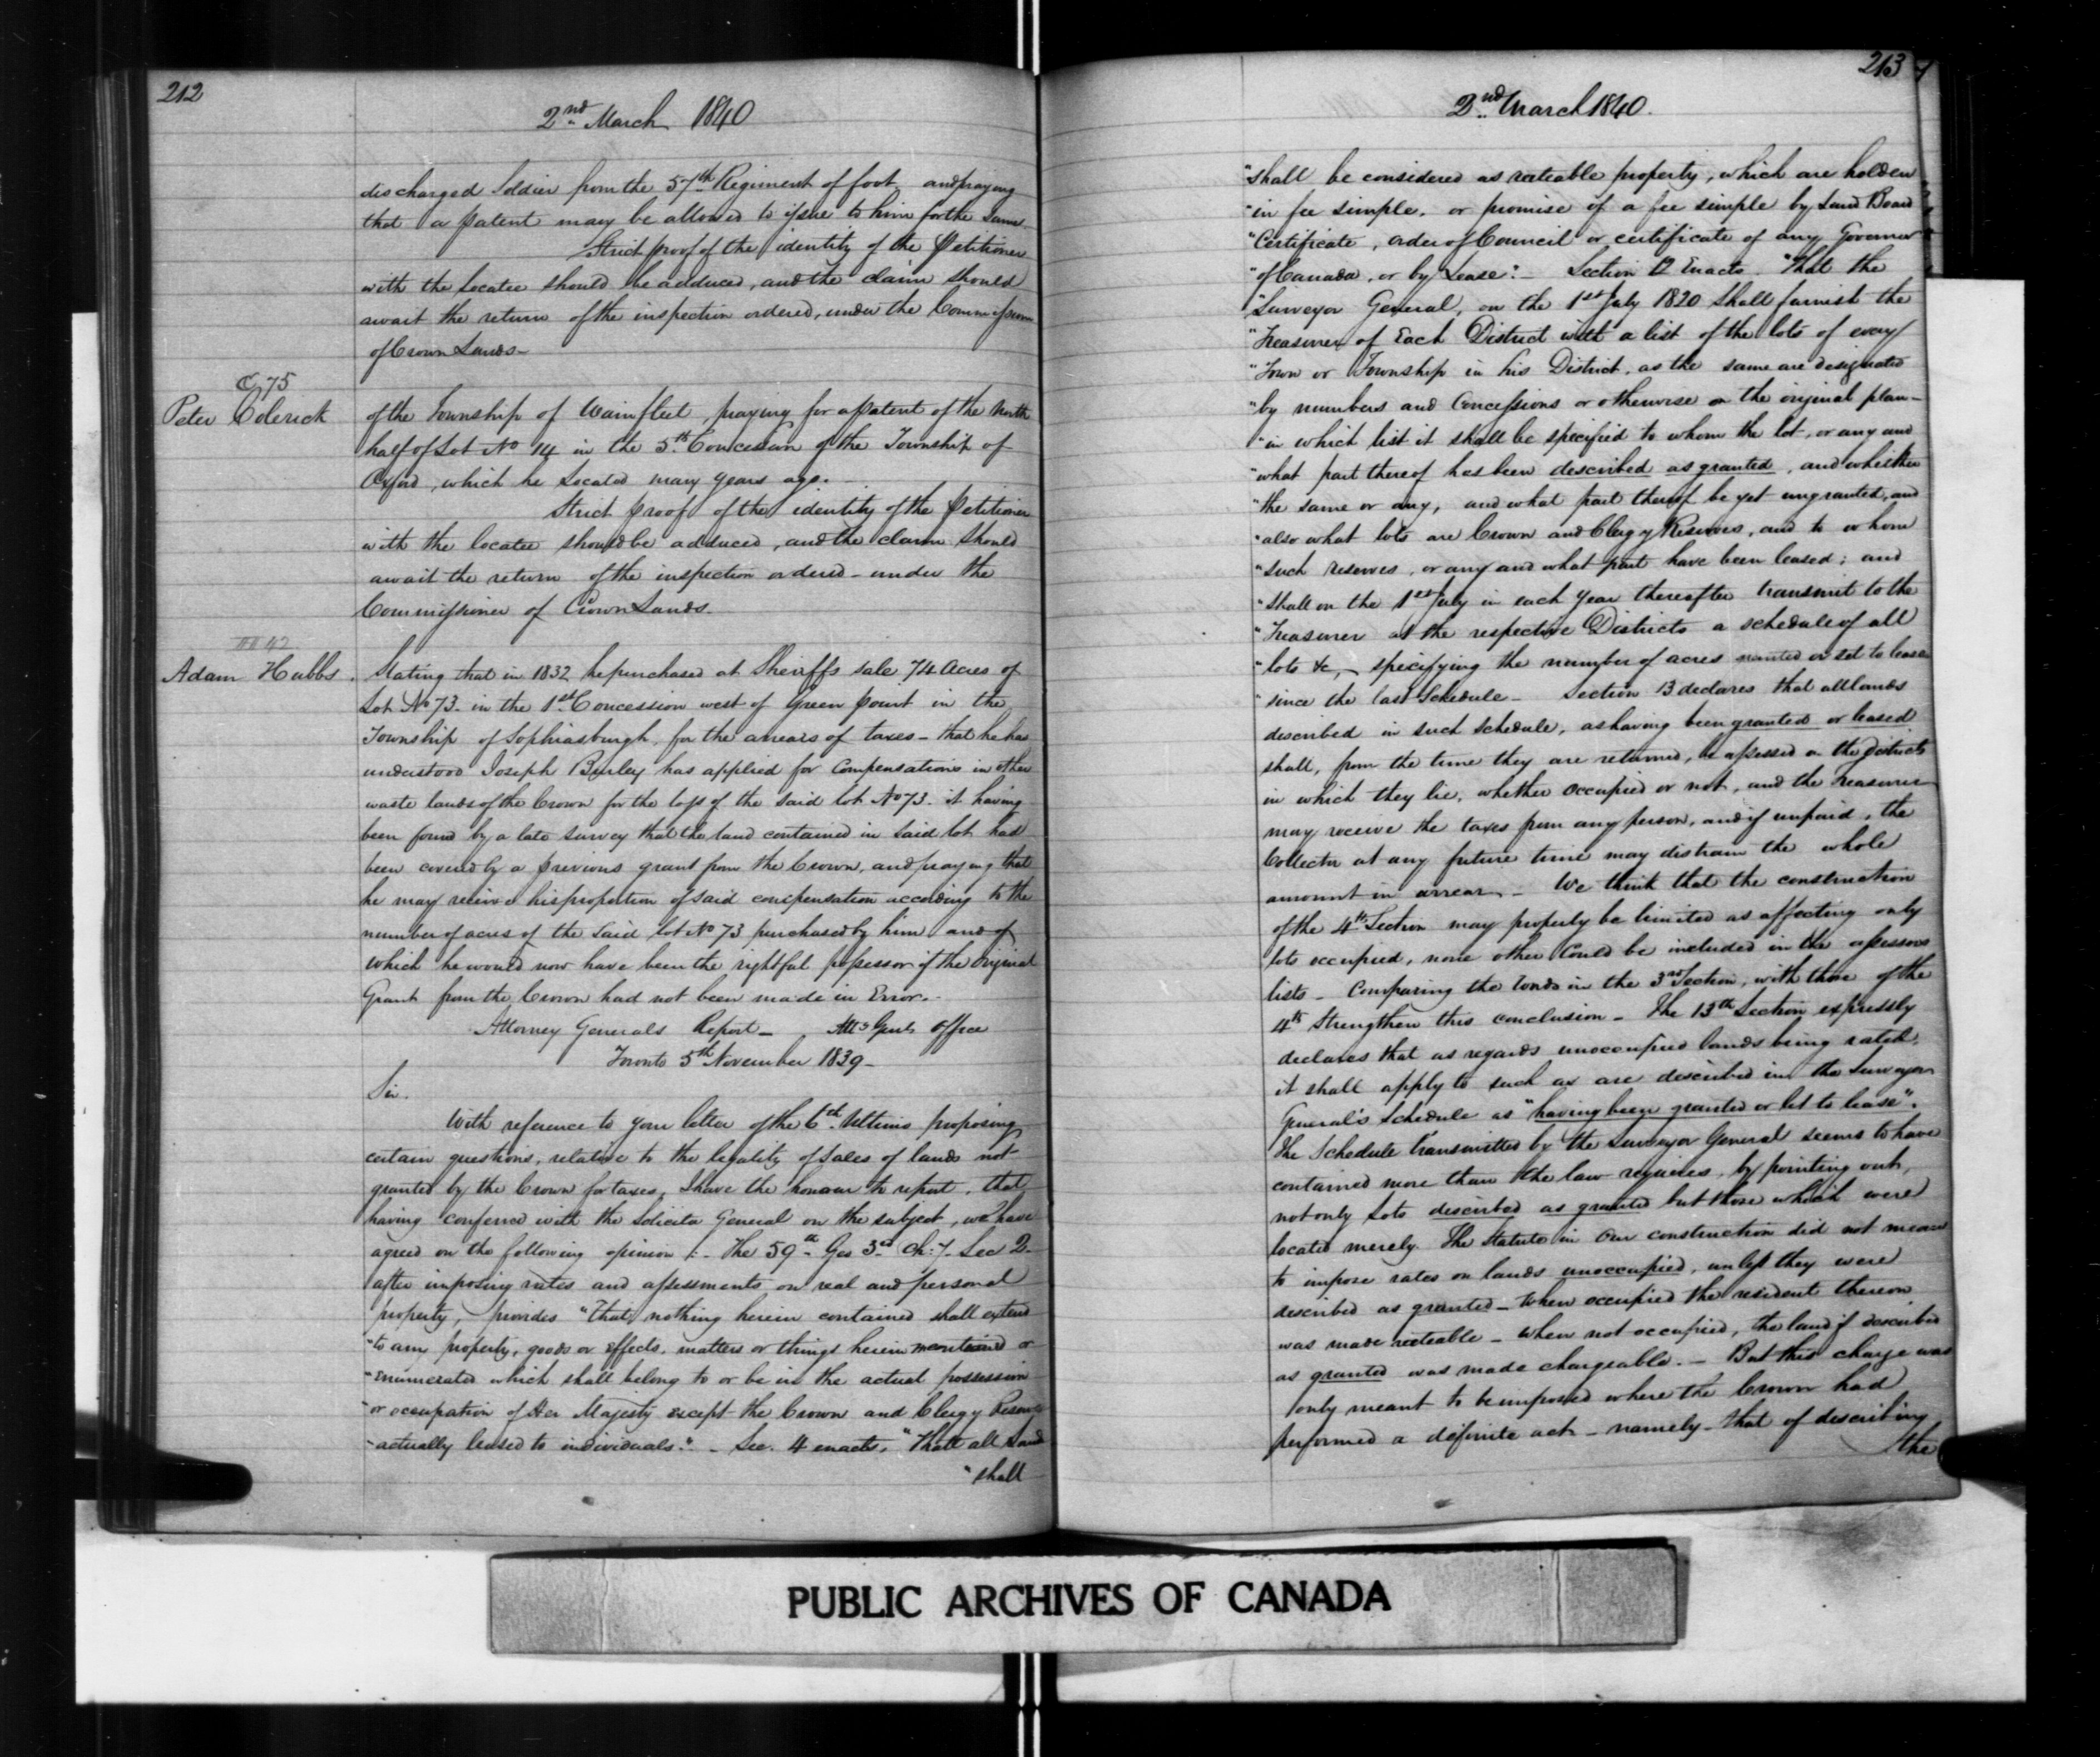 212
2nd March 1840
discharged Soldier from the 57th Regiment of foot and praying
that a patent may be allowed to issue to him for the same.
Strict proof of the identity of the Petitioner
with the Locatee should be adduced, and the claim should
await the return of the inspection ordered, under the Commissioner
of Crown Lands -
C 75
Peter Colerick
of the Township of Wainfleet praying for a patent of the North
half of Lot No 14 in the 5th Concession of the Township of
Oxford, which he Located many years ago.
Strict proof of the identity of the Petitioner
with the locatee should be adduced, and the claim should
await the return of the inspection ordered - under the
Commissioner of Crown Lands.
42
Adam Hubbs.
Stating that in 1832 he purchased at Sheriffs sale 74 Acres of
Lot No 73. in the 1st Concession west of Green point in the
Township of Sophiasburgh, for the arrears of taxes - that he has
understood Joseph Burley has applied for Compensations in other
waste lands of the Crown for the loss of the said lot No 73. it having
been found by a late survey that the land contained in said lot had
been covered by a previous grant from the Crown, and praying that
he may receive his proportion of said compensation according to the
number of acres of the said lot No 73 purchased by him and of
which he would now have been the rightful possessor if the Original
Grant from the Crown had not been made in Error.-
Attorney Generals Report - Atty Genls Office
Toronto 5th November 1839 -
Sir.
With reference to your letter of the 6th Ultimo proposing
certain questions, relative to the legality of sales of lands not
granted by the Crown for taxes, I have the honour to report, that
having conferred with the Solicitor General on the subject, we have
agreed on the following opinion :- The 59th Geo 3d Ch: 7. Sec 2-
after imposing rates and assessments on real and personal
property, provides "That, nothing herein contained shall extend
"to any property, goods or Effects, matters or things herein mentioned or
"enumerated which shall belong to or be in the actual possession
"or occupation of Her Majesty except the Crown and Clergy Reserves
"actually leased to individuals." - Sec. 4 enacts. "That all Lands
"shall
213
2nd March 1840.
"shall be considered as rateable property, which are holden
"in fee simple, or promise of a fee simple by Land Board
"Certificate, order of Council or certificate of any Governor
"of Canada, or by Lease". - Section 12 Enacts. "That the
"Surveyor General, on the 1st July 1820 shall furnish the
"Treasurer of Each District with a list of the lots of every
"Town or Township in his District, as the same are designated
"by numbers and Concessions or otherwise on the original plan -
"in which list it shall be specified to whom the lot, or any and
"what part thereof has been described as granted, and whether
"the same or any, and what part thereof be yet ungranted, and
"also what lots are Crown and Clergy Reserves, and to whom
"such reserves, or any and what part have been leased; and
"shall on the 1st July in each year thereafter transmit to the
"Treasurer of the respective Districts a schedule of all
"lots &c, - specifying the number of acres granted or let to lease
"since the last Schedule - Section 13 declares that all lands
described in such schedule, as having been granted or leased
shall, from the time they are returned, be assessed in the districts
in which they lie, whether occupied or not, and the Treasurer
may receive the taxes from any person, and if unpaid, the
Collector at any future time may distrain the whole
amount in arrear - We think that the construction
of the 4th Section may properly be limited as affecting only
lots occupied, none other could be included in the assessors
lists - Comparing the words in the 3rd Section, with those of the
4th Strengthen this conclusion - The 13th Section expressly
declares that as regards unoccupied lands being rated,
it shall apply to such as are described in the Surveyor
General's Schedule as "having been granted or let to lease".
The Schedule transmitted by the Surveyor General seems to have
contained more than the law requires, by pointing out,
not only lots described as granted but those which were
located merely. The Statute in our construction did not mean
to impose rates on lands unoccupied, unless they were
described as granted - when occupied the resident thereon
was made rateable - when not occupied, the land if described
as granted was made chargeable. - But this charge was
only meant to be imposed where the Crown had
performed a definite act - namely - that of describing
the
PUBLIC ARCHIVES OF CANADA